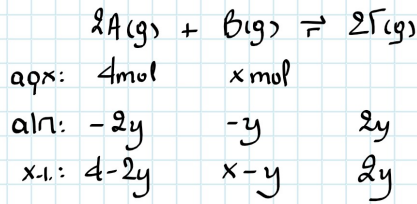 2A(g) + B(g) ⇌ 2Γ(g)
αρχ: 4mol x mol
αλπ: -2y -y 2y
χ.ι.: 4-2y x-y 2y